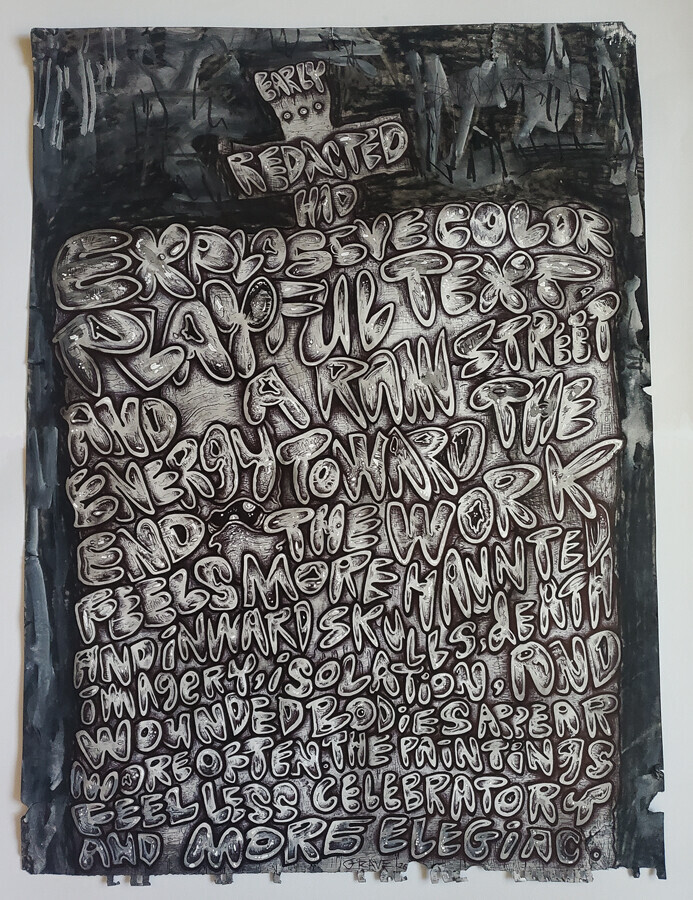 EARLY
REDACTED
HID
EXPLOSIVE COLOR
PLAYFUL TEXT.
AND A RAW STREET
ENERGY TOWARD THE
END THE WORK
FEELS MORE HAUNTED
AND INWARD SKULLS, DEATH
IMAGERY, ISOLATION, AND
WOUNDED BODIES APPEAR
MORE OFTEN. THE PAINTINGS
FEEL LESS CELEBRATORY
AND MORE ELEGIAC.